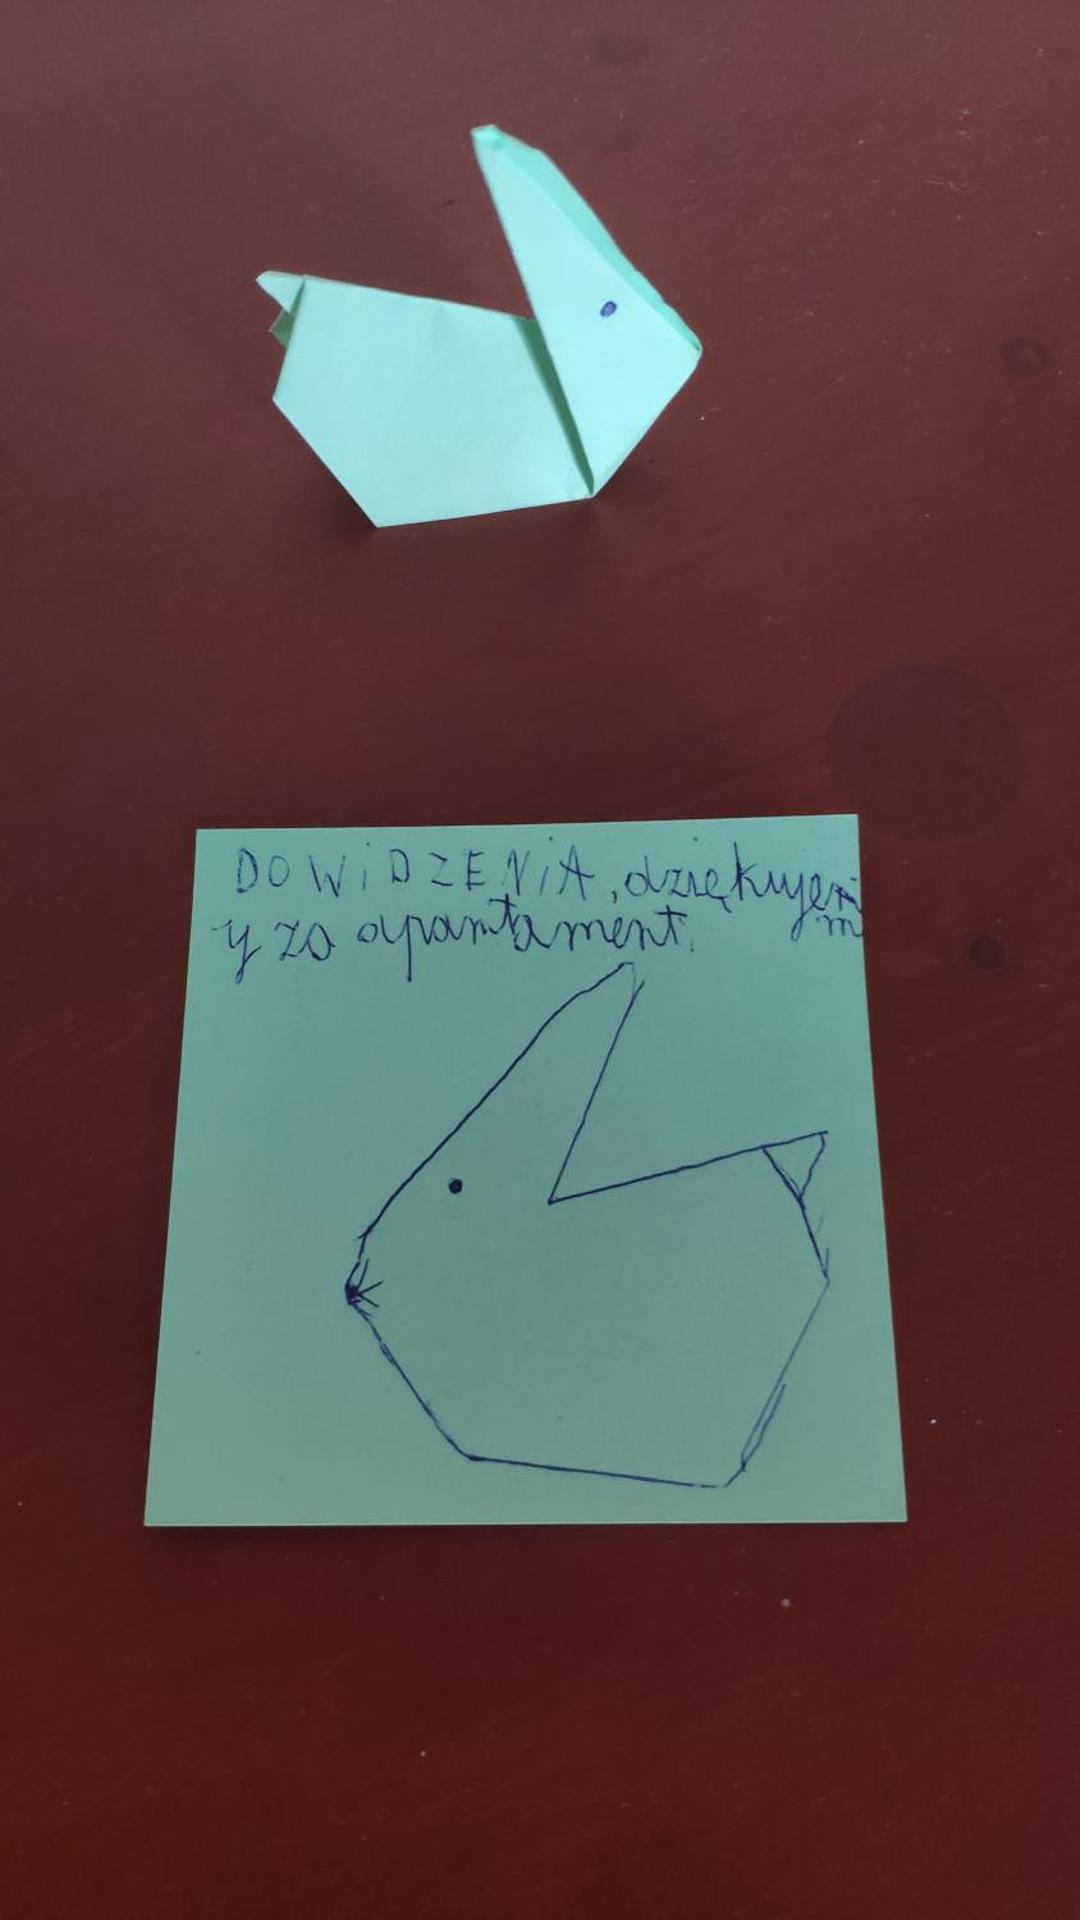 DO WiDZENiA, dziękujem
y za apartament.